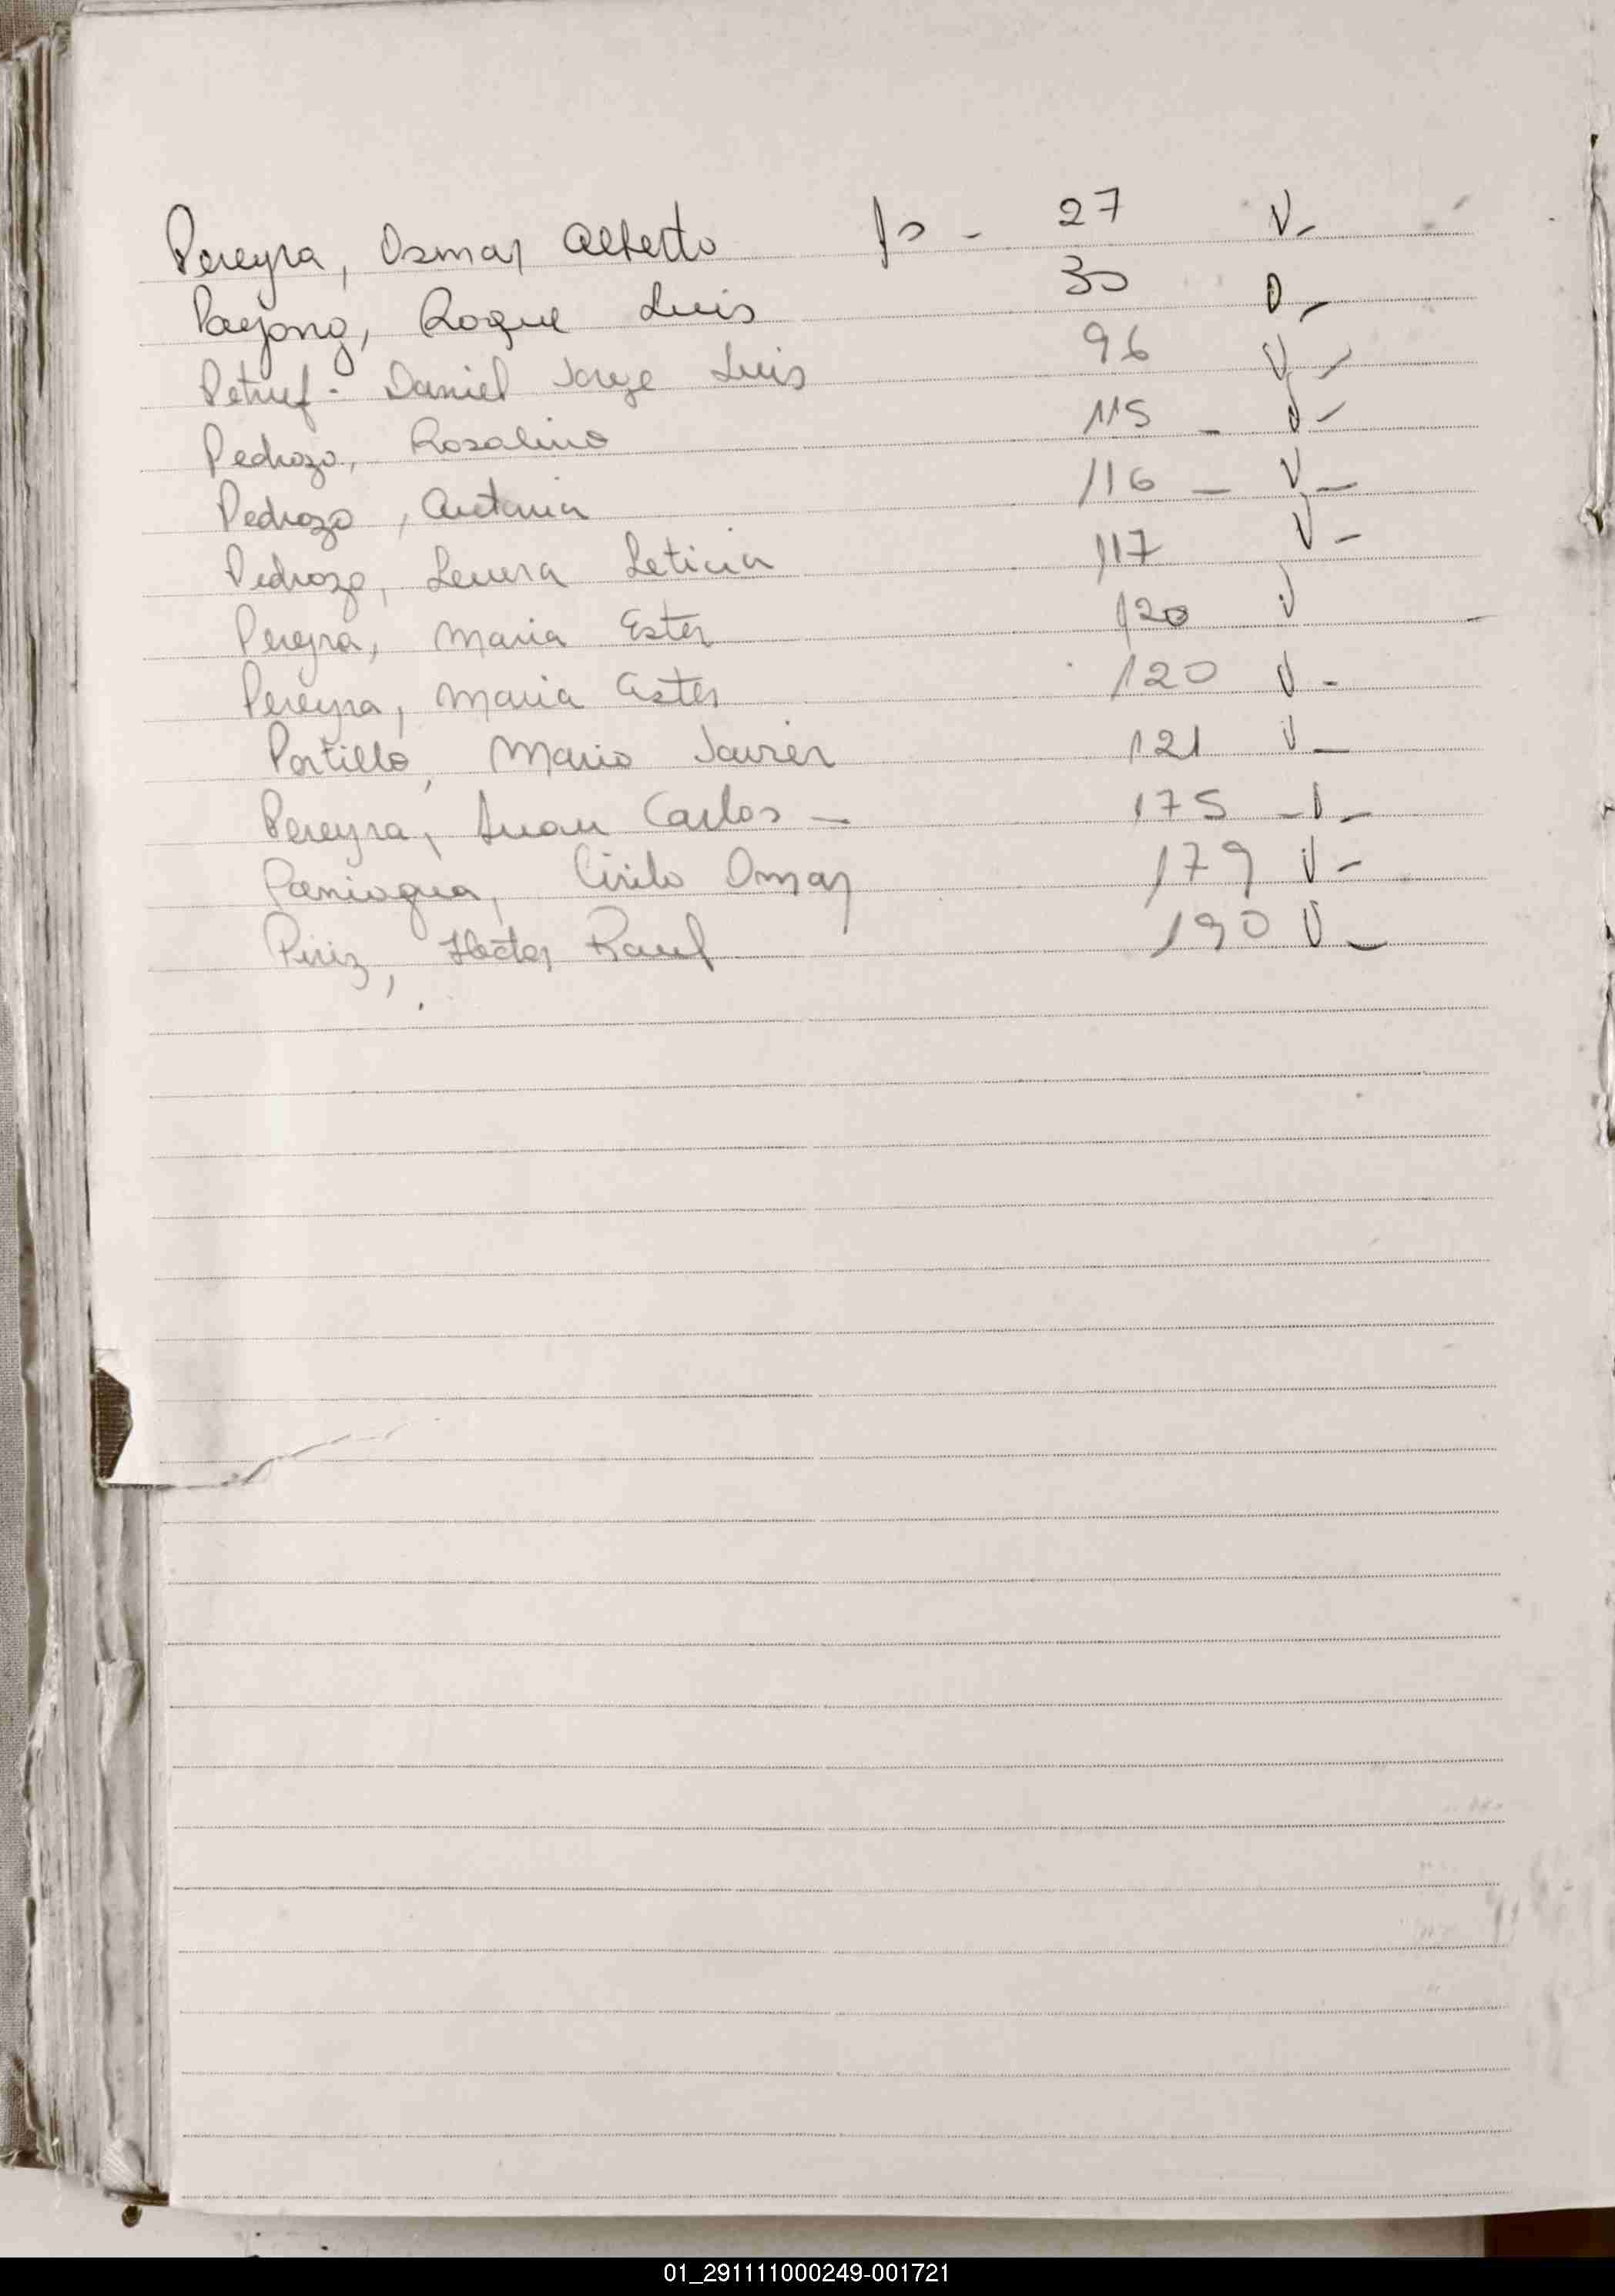 Pereyra, Osmar Alberto fs - 27 V-
Payong, Roque Luis 30 V-
Daniel Jorge Luis 96 V-
Pedrozo, Rosalino 115 - V-
Pedrozo, Antonia 116 - V-
Pedrozo, Leticia 117 V-
Pereyra, Maria Ester 120 V -
Pereyra, Maria Ester 120 V -
Portillo, Mario Javier 121 V-
Pereyra, Juan Carlos - 175 - V-
Paniagua, Cirilo Omar 179 V-
Piriz, Hector Raul 190 V-
01_291111000249-001721